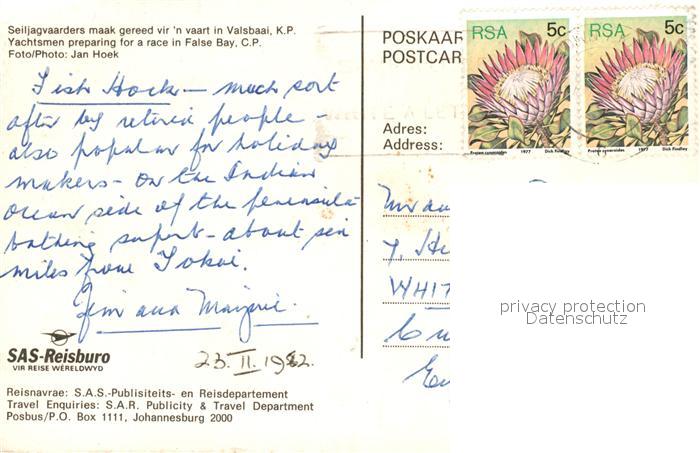 Seiljagvaarders maak gereed vir 'n vaart in Valsbaai, K.P.
Yachtsmen preparing for a race in False Bay, C.P.
Foto/Photo: Jan Hoek
Fish Hoek — much sort
after by retired people –
also popular for holiday
makers – on the Indian
Ocean side of the peninsula
bathing superb – about six
miles from Tokai.
Jim and Marjorie.
23.II.1982.
SAS-Reisburo
VIR REISE WÊRELDWYD
Reisnavrae: S.A.S.-Publisiteits- en Reisdepartement
Travel Enquiries: S.A.R. Publicity & Travel Department
Posbus/P.O. Box 1111, Johannesburg 2000
POSKAAR
POSTCAR
RSA 5c
1977 Dick Findlay
RSA 5c
1977 Dick Findlay
Adres:
Address:
WHIT
privacy protection
Datenschutz